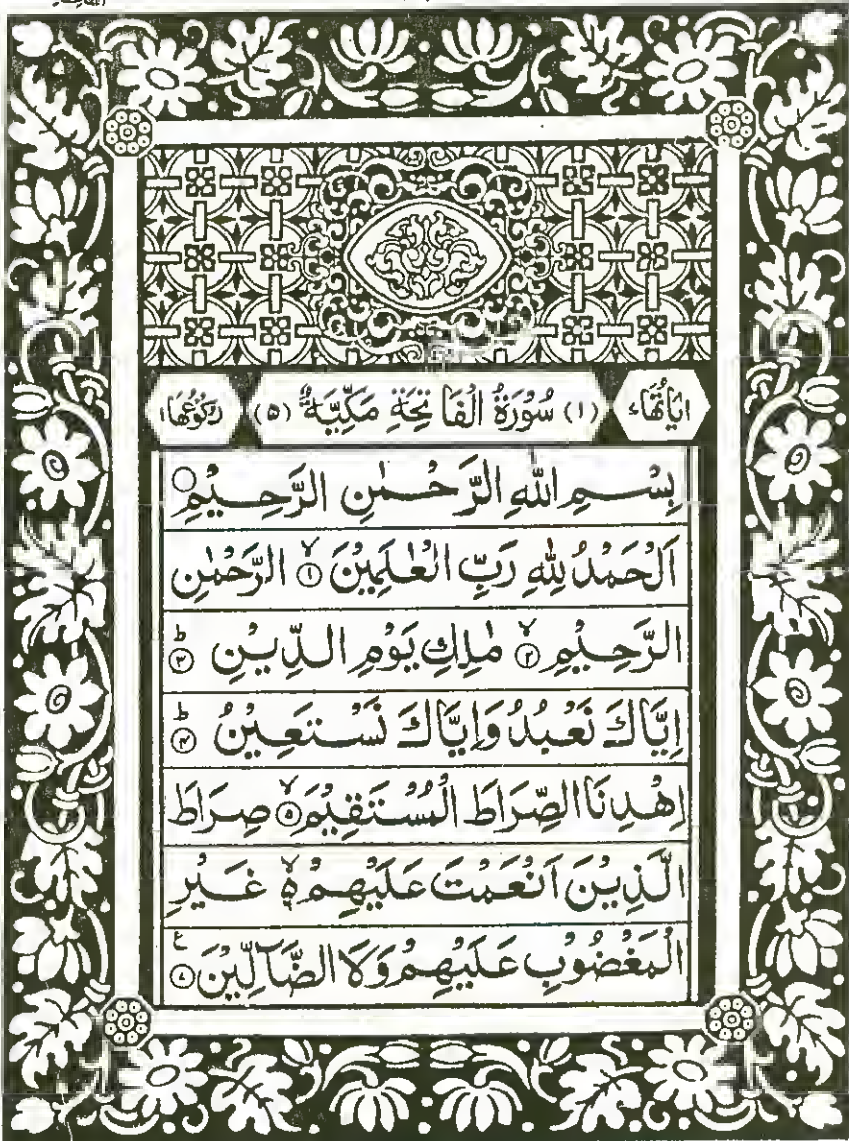 اٰيَاتُهَا ٧ (١) سُوْرَةُ الْفَاتِحَةِ مَكِّيَّةٌ (٥) رُكُوْعُهَا ١
بِسْمِ اللّٰهِ الرَّحْمٰنِ الرَّحِيْمِ ۝
اَلْحَمْدُ لِلّٰهِ رَبِّ الْعٰلَمِيْنَ ۙ﴿١﴾ الرَّحْمٰنِ
الرَّحِيْمِ ۙ﴿٢﴾ مٰلِكِ يَوْمِ الدِّيْنِ ؕ﴿٣﴾
اِيَّاكَ نَعْبُدُ وَاِيَّاكَ نَسْتَعِيْنُ ؕ﴿٤﴾
اِهْدِنَا الصِّرَاطَ الْمُسْتَقِيْمَ ۙ﴿٥﴾ صِرَاطَ
الَّذِيْنَ اَنْعَمْتَ عَلَيْهِمْ ۙ۬ غَيْرِ
الْمَغْضُوْبِ عَلَيْهِمْ وَلَا الضَّآلِّيْنَ ﴿٧﴾ ع